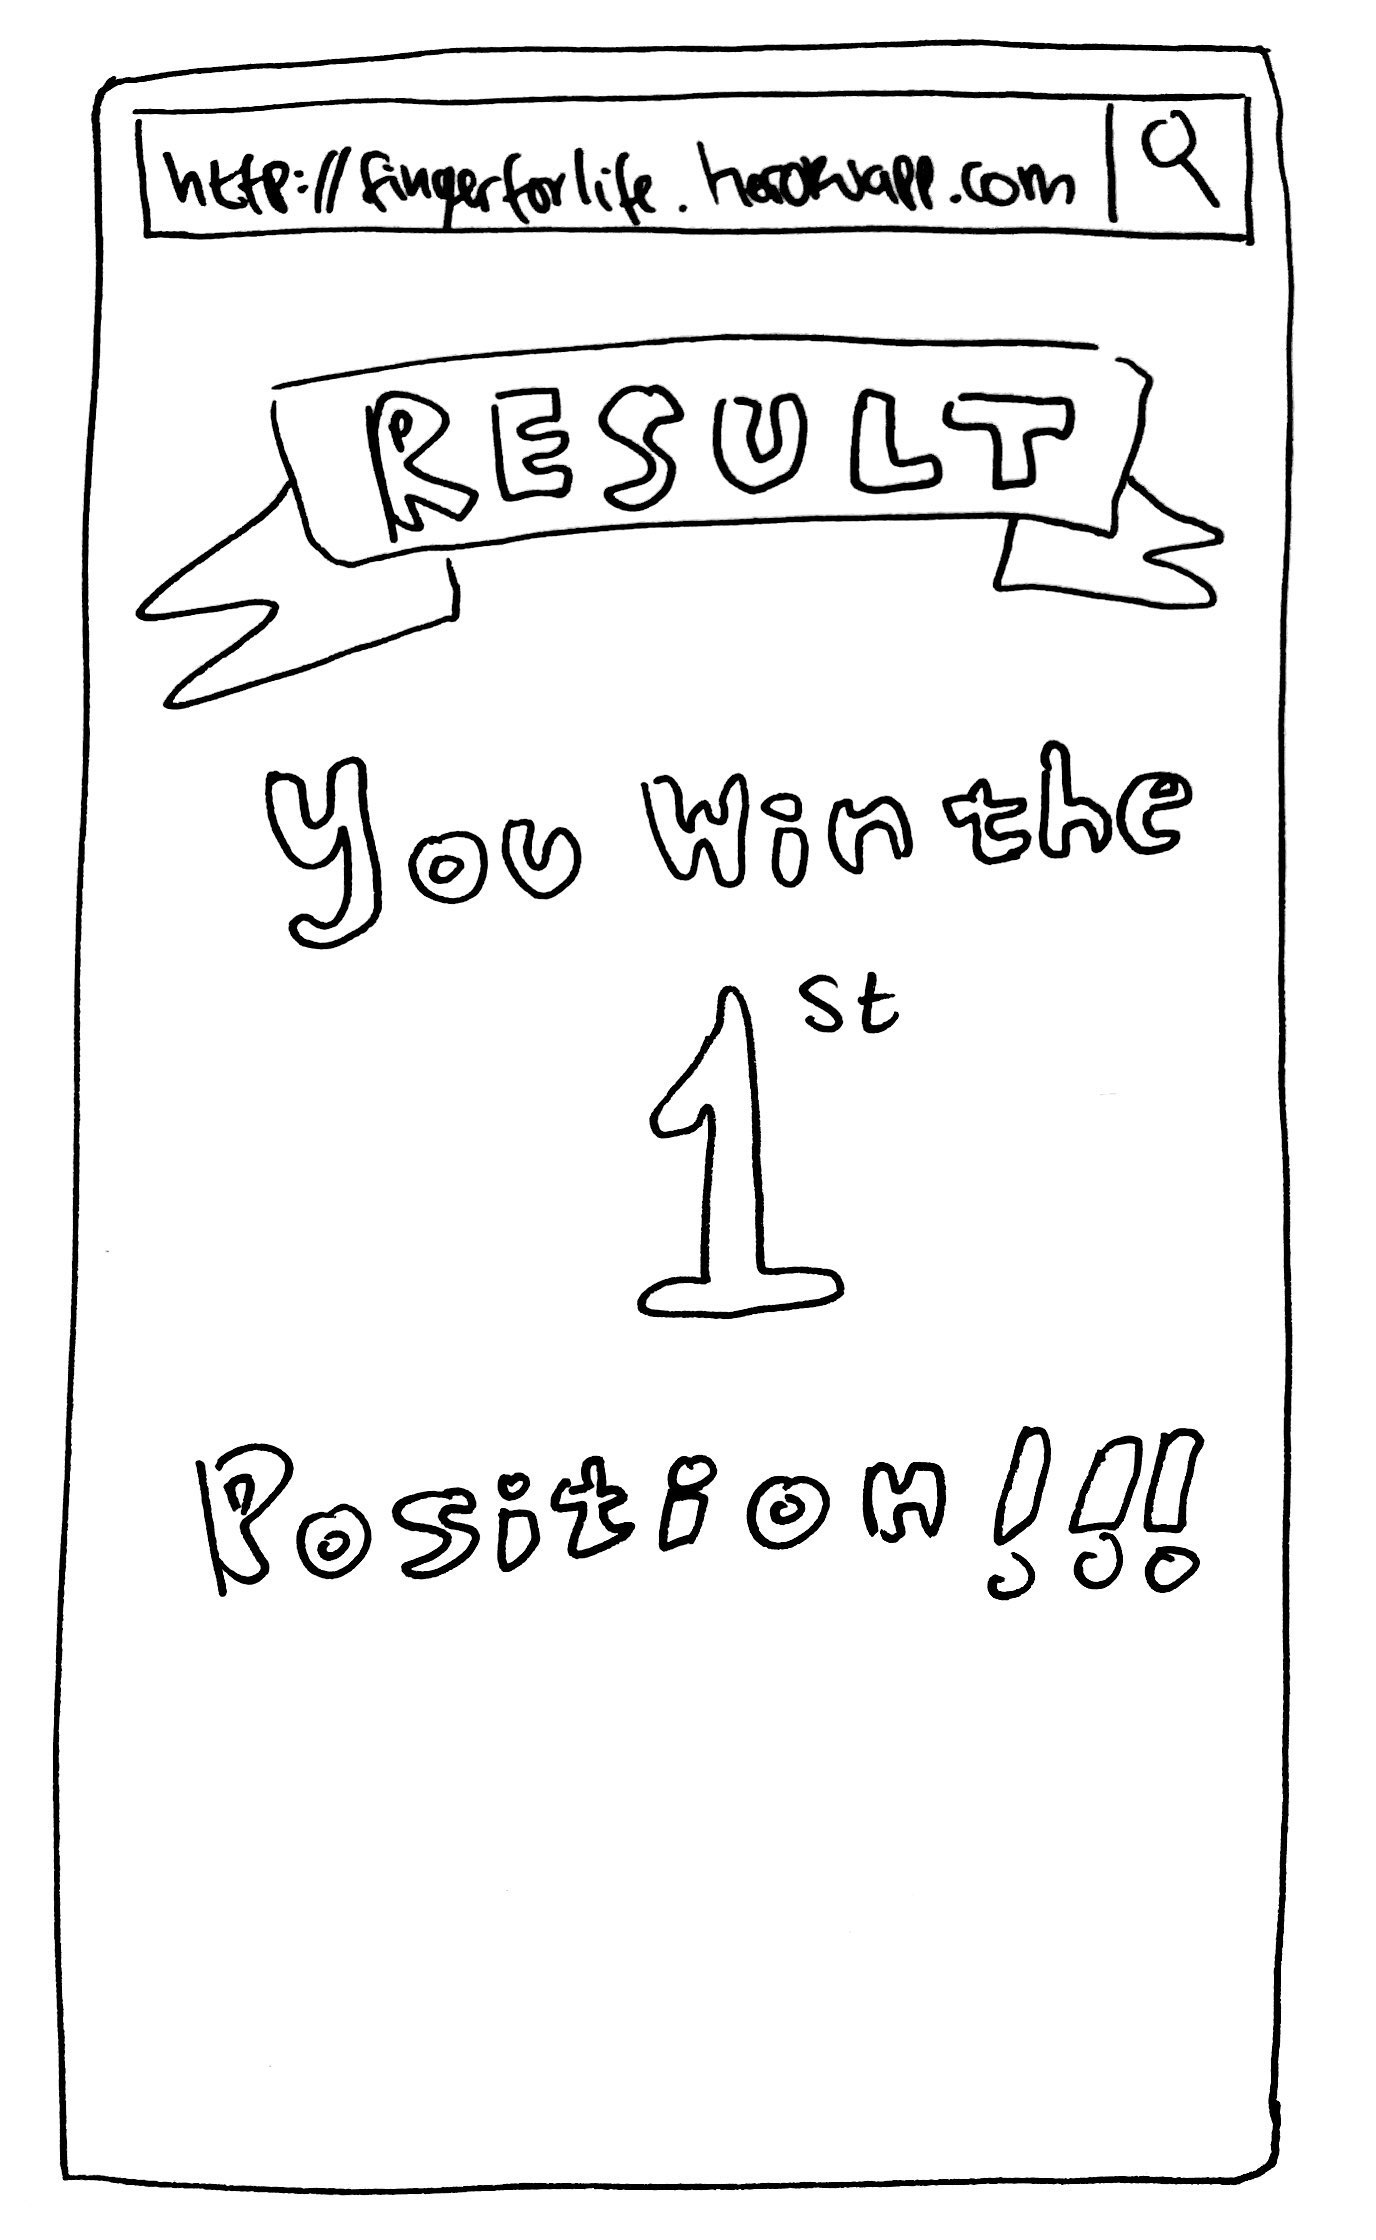 http://fingerforlife.herokuapp.com
RESULT
You Win the
1st
Position!!!